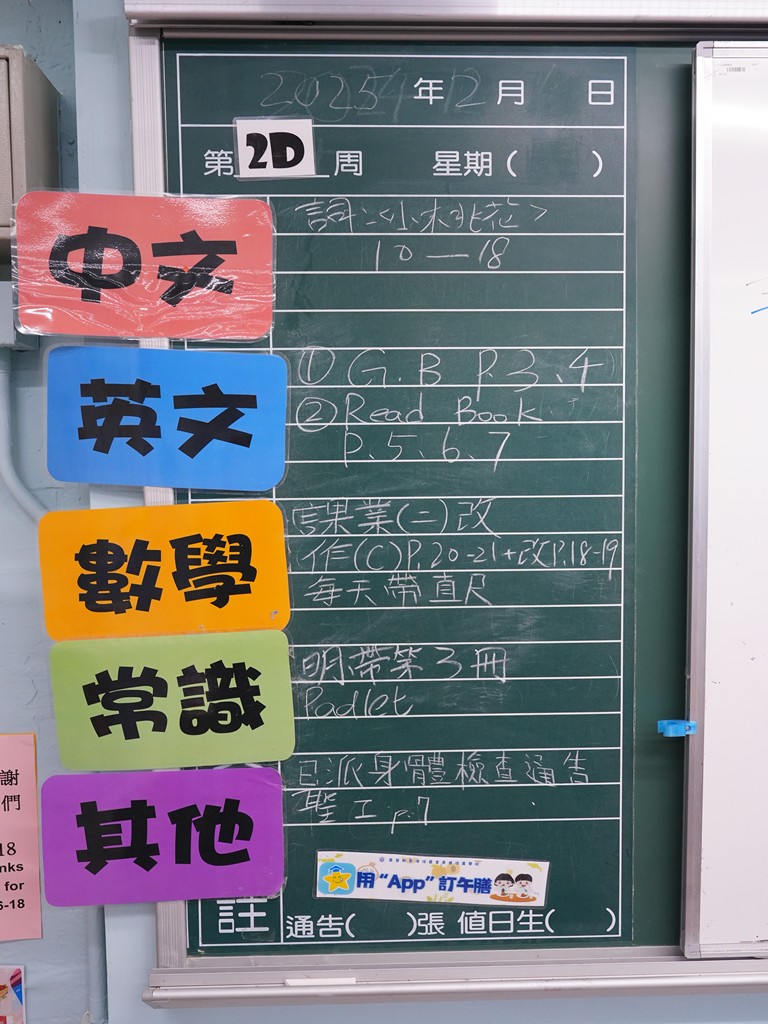 2025年12月 日
第 2D 周 星期( )
中文
詞:<小桃花>
10—18
英文
① G.B P.3、4
② Read Book
P.5、6、7
數學
課業(二)改
作(C)P.20-21+改P.18-19
每天帶直尺
常識
明帶第3冊
Padlet
其他
已派身體檢查通告
聖工 p.7
用“App”訂午膳
註
通告( )張 值日生( )
謝
們
18
nks
for
6-18